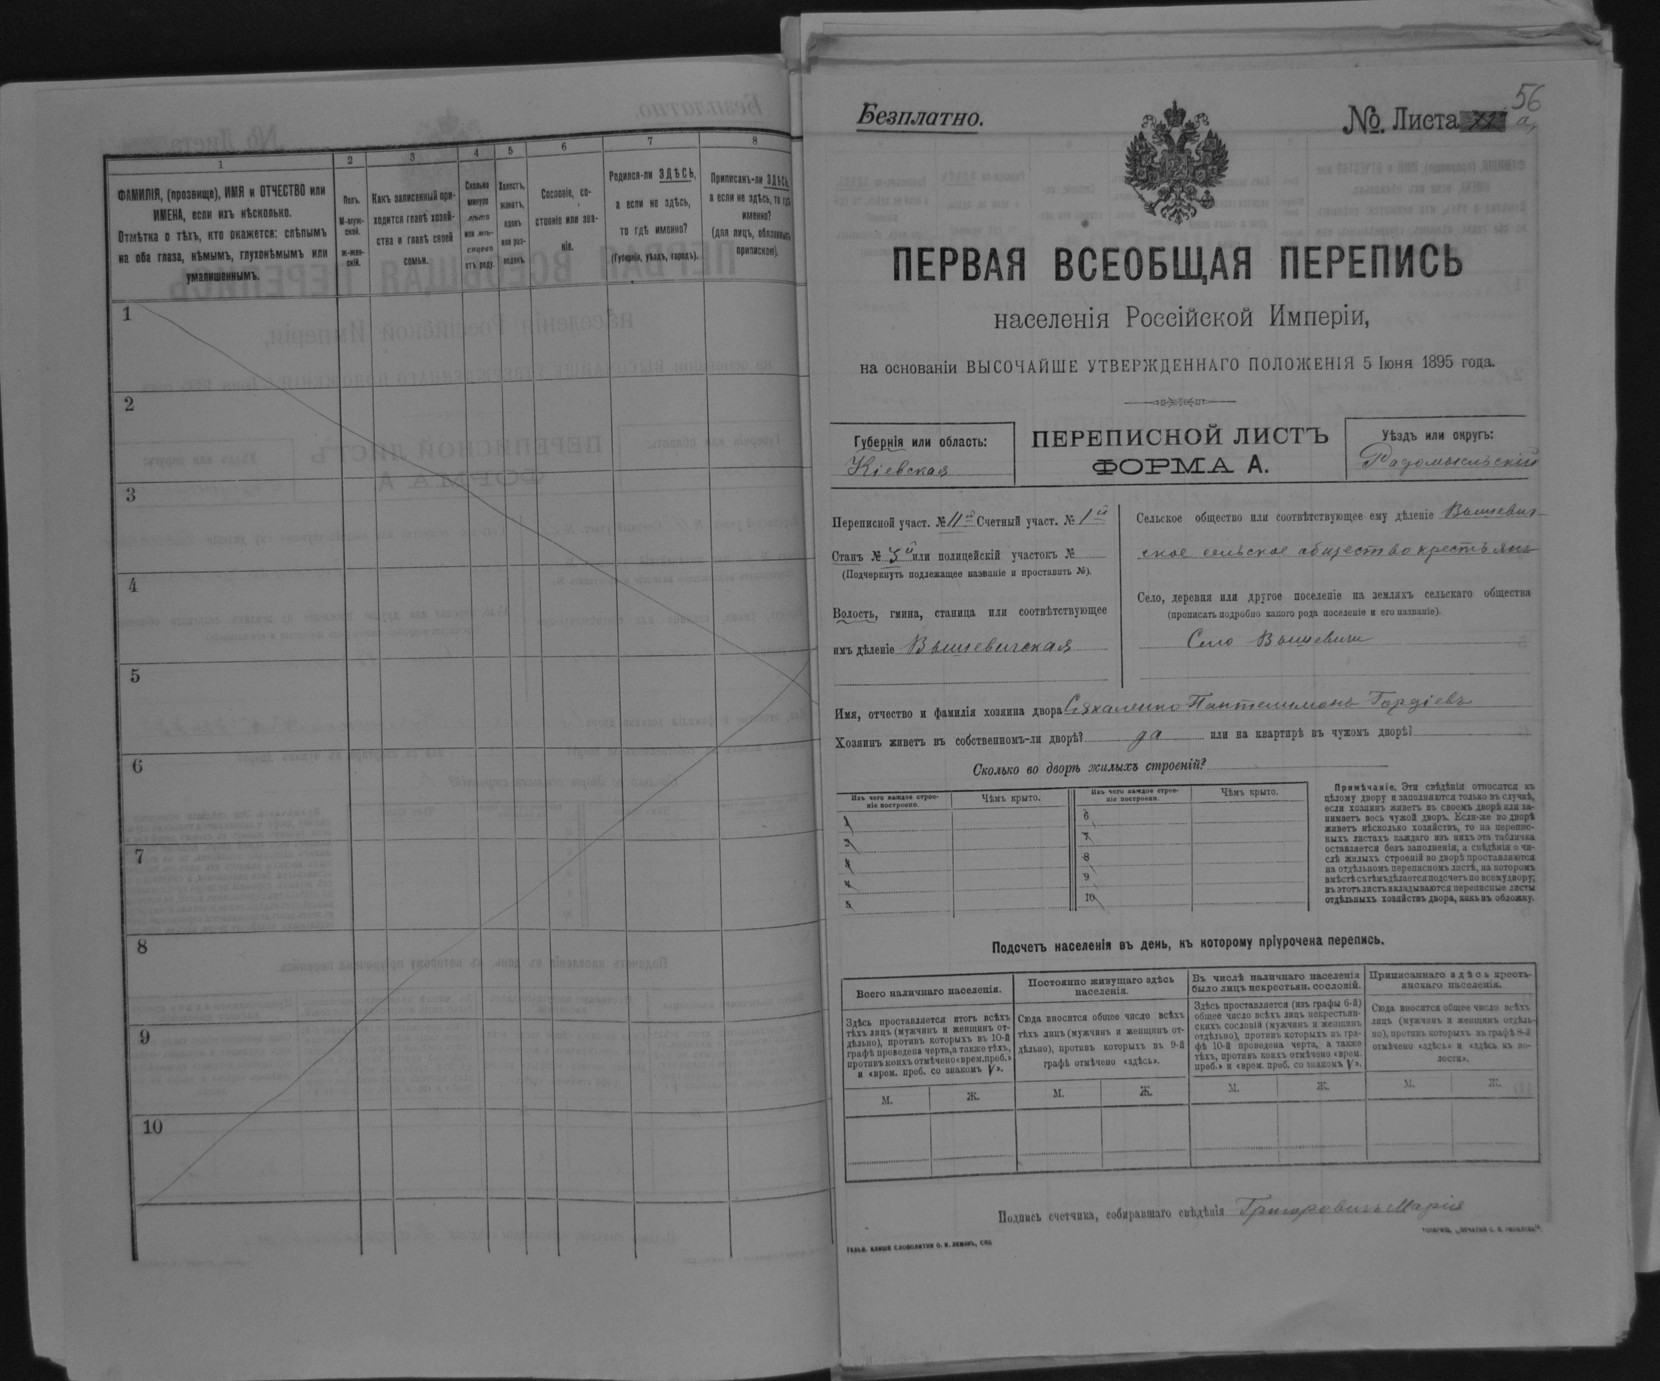 1
2
3
4
5
6
7
8
ФАМИЛІЯ, (прозвище), ИМЯ и ОТЧЕСТВО или
ИМЕНА, если ихъ нѣсколько.
Отмѣтка о тѣхъ, кто окажется: слѣпымъ
на оба глаза, нѣмымъ, глухонѣмымъ или
умалишеннымъ.
Полъ.
М-муж-
ской.
ж-жен-
скій.
Какъ записанный при-
ходится главѣ хозяй-
ства и главѣ своей
семьи.
Сколько
минуло
лѣтъ
или мѣ-
сяцевъ
отъ роду.
Холостъ,
женатъ,
вдовъ
или раз-
веденъ.
Сословіе, со-
стояніе или зва-
ніе.
Родился-ли ЗДѢСЬ,
а если не здѣсь,
то гдѣ именно?
(Губернія, уѣздъ, городъ).
Приписанъ-ли ЗДѢСЬ,
а если не здѣсь, то гдѣ
именно?
(для лицъ, обязанныхъ
припискою).
1
2
3
4
5
6
7
8
9
10
56
Безплатно.
№. Листа
а,
ПЕРВАЯ ВСЕОБЩАЯ ПЕРЕПИСЬ
населенія Россійской Имперіи,
на основаніи ВЫСОЧАЙШЕ УТВЕРЖДЕННАГО ПОЛОЖЕНІЯ 5 Іюня 1895 года.
Губернія или область:
Кіевская
ПЕРЕПИСНОЙ ЛИСТЪ
ФОРМА А.
Уѣздъ или округъ:
Радомысльскій
Переписной участ. № 11й Счетный участ. № 1й
Станъ № 5й или полицейскій участокъ №
(Подчеркнуть подлежащее названіе и проставить №).
Волость, гмина, станица или соотвѣтствующее
имъ дѣленіе Вышевичская
Сельское общество или соотвѣтствующее ему дѣленіе Вышевич-
ское сельское общество крестьянъ
Село, деревня или другое поселеніе на земляхъ сельскаго общества
(прописать подробно какого рода поселеніе и его названіе).
Село Вышевичи
Имя, отчество и фамилія хозяина двора Сухаленко Пантелимонъ Гордіевъ
Хозяинъ живетъ въ собственномъ-ли дворѣ? да или на квартирѣ въ чужомъ дворѣ?
Сколько во дворѣ жилыхъ строеній?
Изъ чего каждое строе-
ніе построено.
Чѣмъ крыто.
Изъ чего каждое строе-
ніе построено.
Чѣмъ крыто.
1
2
3
4
5
6
7
8
9
10
Примѣчаніе. Эти свѣдѣнія относятся къ
цѣлому двору и заполняются только въ случаѣ,
если хозяинъ живетъ въ своемъ дворѣ или за-
нимаетъ весь чужой дворъ. Если-же во дворѣ
живетъ нѣсколько хозяйствъ, то на перепис-
ныхъ листахъ каждаго изъ нихъ эта табличка
оставляется безъ заполненія, а свѣдѣнія о чи-
слѣ жилыхъ строеній во дворѣ проставляются
на отдѣльномъ переписномъ листѣ, на которомъ
вмѣстѣ съ тѣмъ дѣлается подсчетъ по всему двору;
въ этотъ листъ вкладываются переписные листы
отдѣльныхъ хозяйствъ двора, какъ въ обложку.
Подсчетъ населенія въ день, къ которому пріурочена перепись.
Всего наличнаго населенія.
Постоянно живущаго здѣсь
населенія.
Въ числѣ наличнаго населенія
было лицъ некрестьян. сословій.
Приписаннаго здѣсь кресть-
янскаго населенія.
Здѣсь проставляется итогъ всѣхъ
тѣхъ лицъ (мужчинъ и женщинъ от-
дѣльно), противъ которыхъ въ 10-й
графѣ проведена черта, а также тѣхъ,
противъ коихъ отмѣчено «врем. проб.»
и «врем. проб. со знакомъ V».
Сюда вносится общее число всѣхъ
тѣхъ лицъ (мужчинъ и женщинъ от-
дѣльно), противъ которыхъ въ 9-й
графѣ отмѣчено «здѣсь».
Здѣсь проставляется (изъ графы 6-й)
общее число всѣхъ лицъ некрестьян-
скихъ сословій (мужчинъ и женщинъ
отдѣльно), противъ которыхъ въ гра-
фѣ 10-й проведена черта, а также
тѣхъ, противъ коихъ отмѣчено «врем.
проб.» и «врем. проб. со знакомъ V».
Сюда вносится общее число всѣхъ
лицъ (мужчинъ и женщинъ отдѣль-
но), противъ которыхъ въ графѣ 8-й
отмѣчено «здѣсь» и «здѣсь въ во-
лости».
М.
Ж.
М.
Ж.
М.
Ж.
М.
Ж.
Подпись счетчика, собиравшаго свѣдѣнія Григоровичъ Марія
ГАЛЬВ. КЛИШЕ СЛОВОЛИТНИ О. И. ЛЕМАНЪ, СПБ.